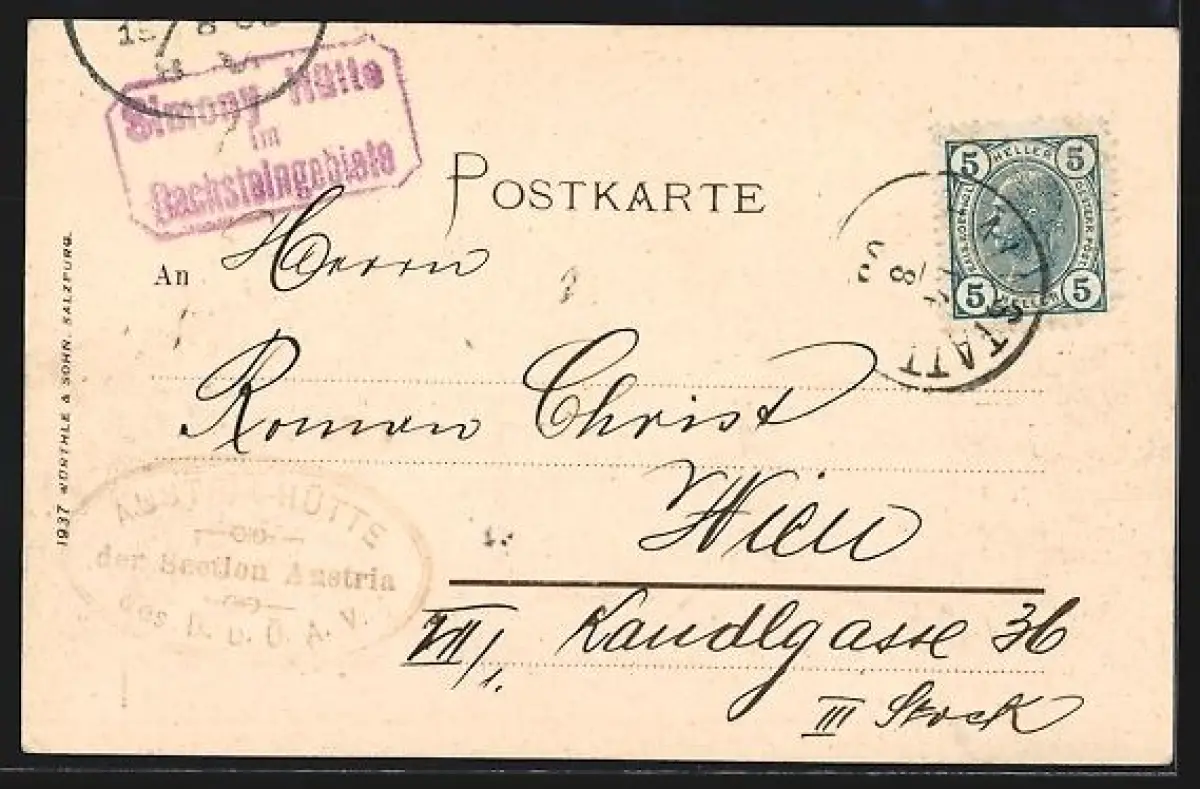 Simony-Hütte
im
Dachsteingebiete
POSTKARTE
5 HELLER 5
5 HELLER 5
An Herrn
Roman Christ
Wien
VII/1. Kandlgasse 36
III Stock
AUSTRIA-HÜTTE
der Section Austria
des D. u. Ö. A. V.
1937 WÜRTHLE & SOHN. SALZBURG.